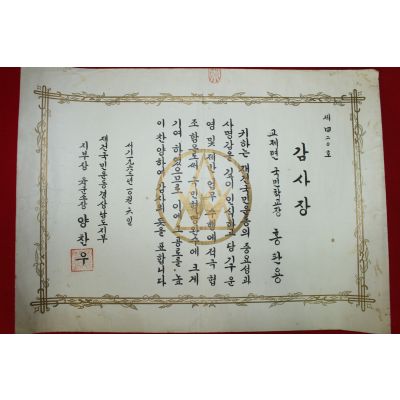 제 四二〇호
감사장
국민학교장 홍환용
귀하는 재건국민운동의 중요성과
사명감을 깊이 인식하고 당기구 운
영 및 제반 업무수행에 적극 협
조 함으로써 국민운동에 크게
기여 하였으므로 이에 그 공로를 높
이 찬양하여 감사의 뜻을 표합니다
서기一九六二년 월 일
재건국민운동경상남도지부
지부장 육군소장 양찬우